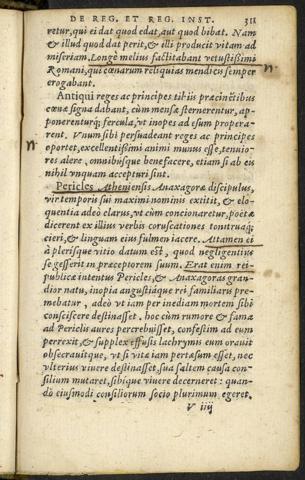 DE REG. ET REG. INST. 311
retur, qui ei dat quod edat, aut quod bibat. Nam
& illud quod dat perit, & illi producit vitam ad
miseriam. Longè melius factitabant vetustißimi
Romani, qui cœnarum reliquias mendicis semper
erogabant.
Antiqui reges ac principes tibiis præcinctibus
cœnæ signa dabant, cùm mensæ sternerentur, ap-
ponerenturq́; fercula, vt inopes ad esum properare-
rent. Vnum sibi persuadeant reges ac principes
oportet, excellentißimi animi munus esse, tenuio-
res alere, omnibúsque benefacere, etiam si ab eis
nihil vnquam accepturi sint.
Pericles Atheniensis Anaxagoræ discipulus,
vir temporis sui maximi nominis extitit, & elo-
quentia adeò clarus, vt cùm concionaretur, poëtæ
dicerent ex illius verbis coruscationes tonitruaq́;
cieri, & linguam eius fulmen iacere. Attamen ei
à plerisque vitio datum est, quod negligentius
se gesserit in præceptorem suum. Erat enim rei-
publicæ intentus Pericles, & Anaxagoras gran-
dior natu, inopia angustiáque rei familiaris pre-
mebatur, adeò vt iam per inediam mortem sibi
consciscere destinasset, hoc cùm rumore & fama
ad Periclis aures percrebuisset, confestim ad eum
perrexit, & supplex effusis lachrymis eum orauit
obsecrauitque, vt si vitæ iam pertæsum esset, nec
vlterius viuere destinasset, sua saltem causa con-
silium mutaret, sibíque viuere decerneret: quan-
dò eiusmodi consiliorum socio plurimum egeret.
V iiij